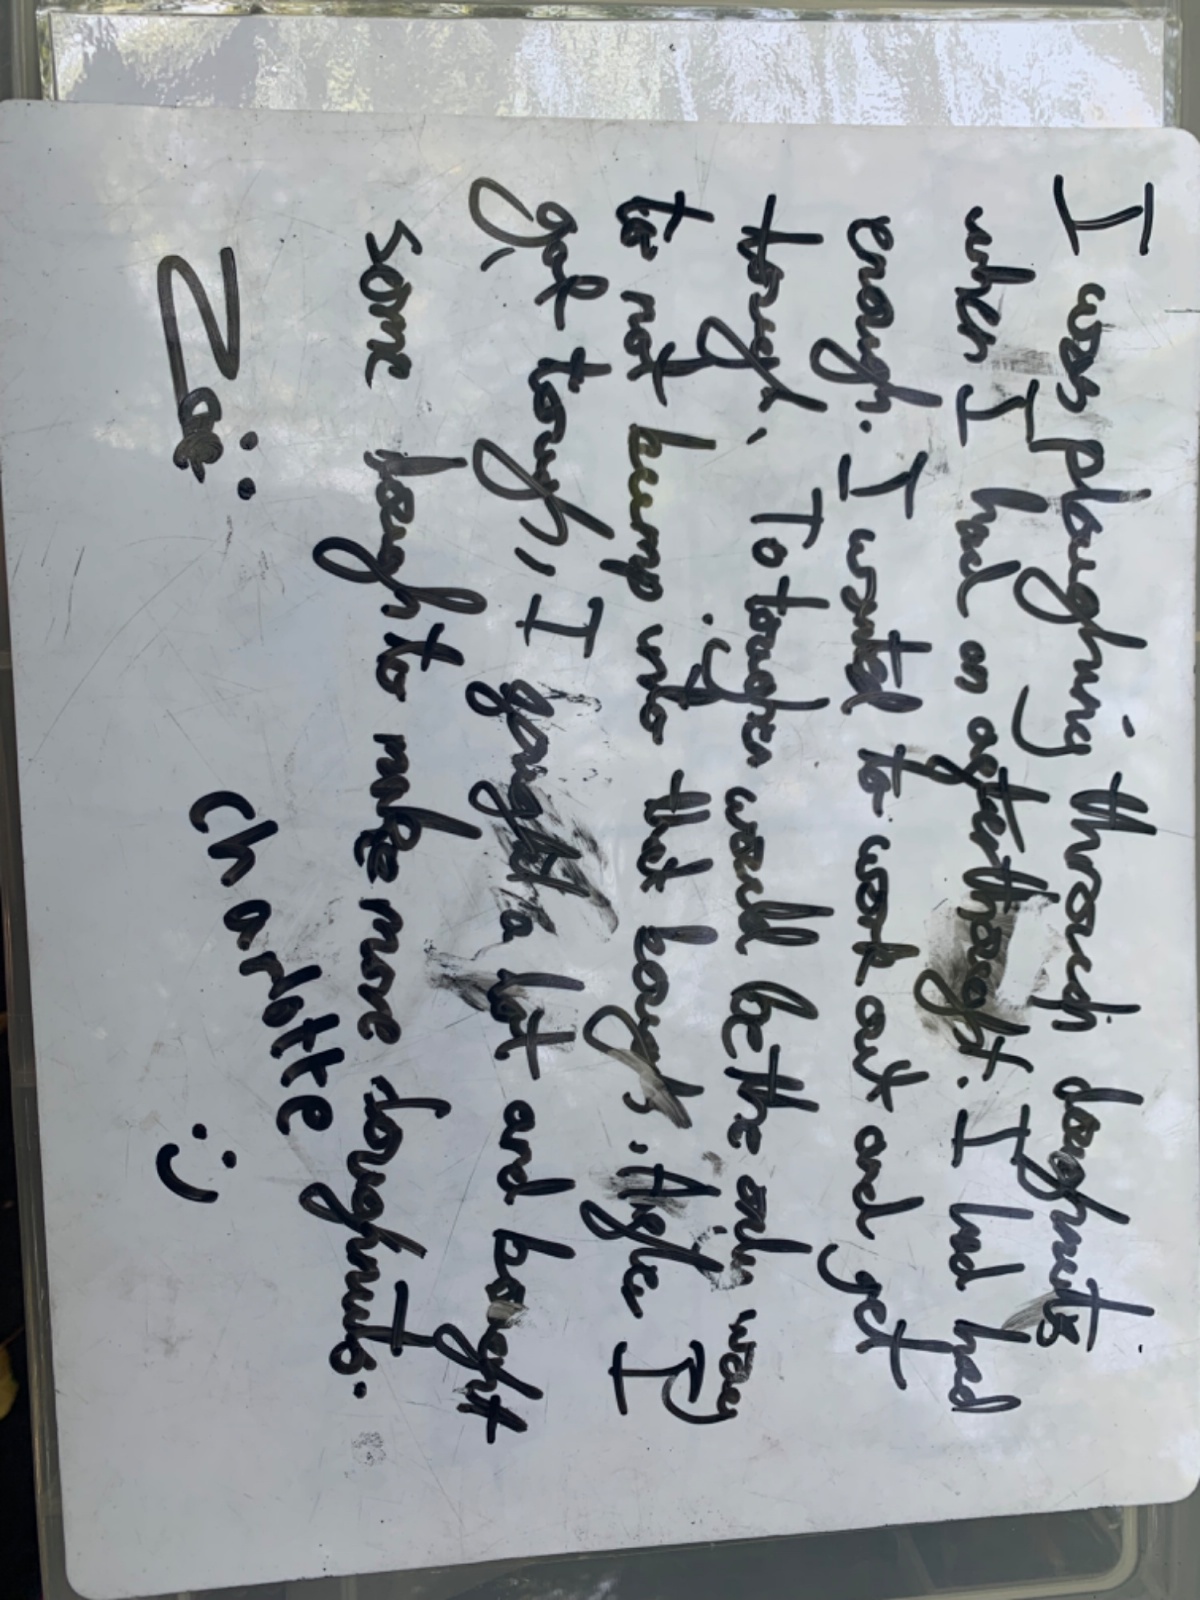 I was ploughing through doughnuts
when I had an afterthought. I had had
enough. I wanted to work out and get
tough. To tougher would be the only way
to not bump into that bough. After I
got tough, I fought a lot and bought
some dough to make more doughnuts.
Zoë
Charlotte :)